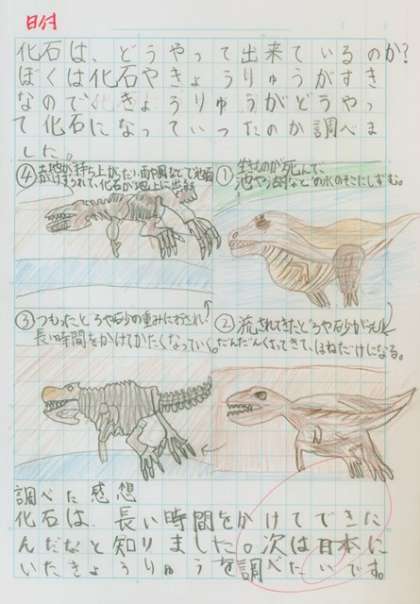 日付
化石は、どうやって出来ているのか?
ぼくは化石やきょうりゅうがすき
なので、きょうりゅうがどうやっ
て化石になっていったのか調べま
した。
①生きものが死んで、
池や湖などの水のそこにしずむ。
②流されてきたどろや砂が
だんだんくさってきて、ほねだけになる。
③つもったどろや砂の重みにおされ、
長い時間をかけてかたくなっていく。
④
化石が地上に出
調べた感想
化石は、長い時間をかけてできた
んだなと知りました。次は日本に
いたきょうりゅうを調べたいです。